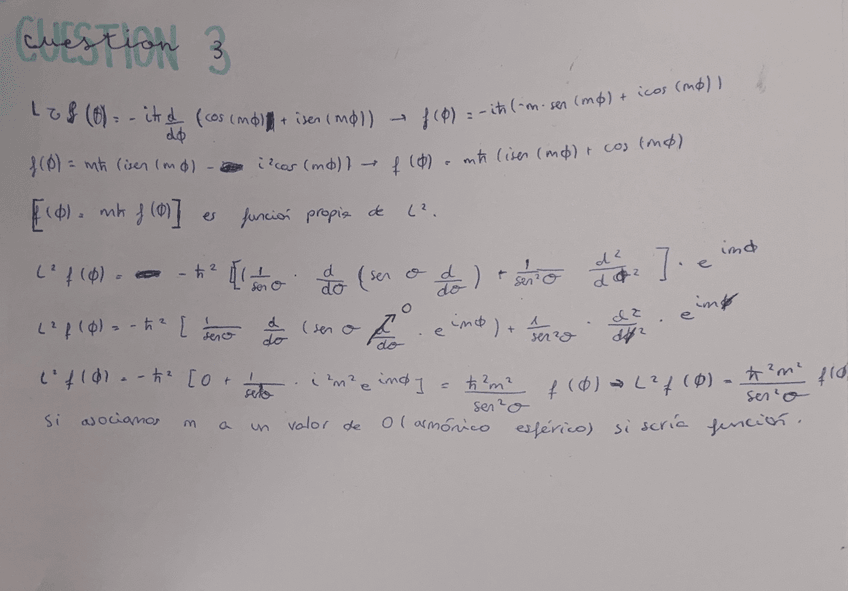 CUESTION 3
cuestion 3
L z f (θ) = - iħ d/dϕ (cos (mϕ) + isen (mϕ)) → f(ϕ) = -iħ (-m · sen (mϕ) + icos (mϕ))
f(ϕ) = mħ (isen (mϕ) - i²cos (mϕ)) → f (ϕ) = mħ (isen (mϕ) + cos (mϕ)
[f(ϕ) = mħ f(ϕ)] es función propia de L².
L² f (ϕ) = - ħ² [(1/sen σ · d/dσ (sen σ d/dσ) + 1/sen²σ d²/dϕ² ] · e^imϕ
L² f (ϕ) = - ħ² [ 1/senσ d/dσ (sen σ d/dσ ↗0 · e^imϕ) + 1/sen²σ · d²/dϕ² · e^imϕ
L² f (ϕ) = - ħ² [0 + 1/senσ · i²m²e^imϕ] = ħ²m²/sen²σ f (ϕ) ⇒ L² f (ϕ) = ħ²m²/sen²σ f(ϕ
Si asociamos m a un valor de 0 (armónico esférico) si sería función.